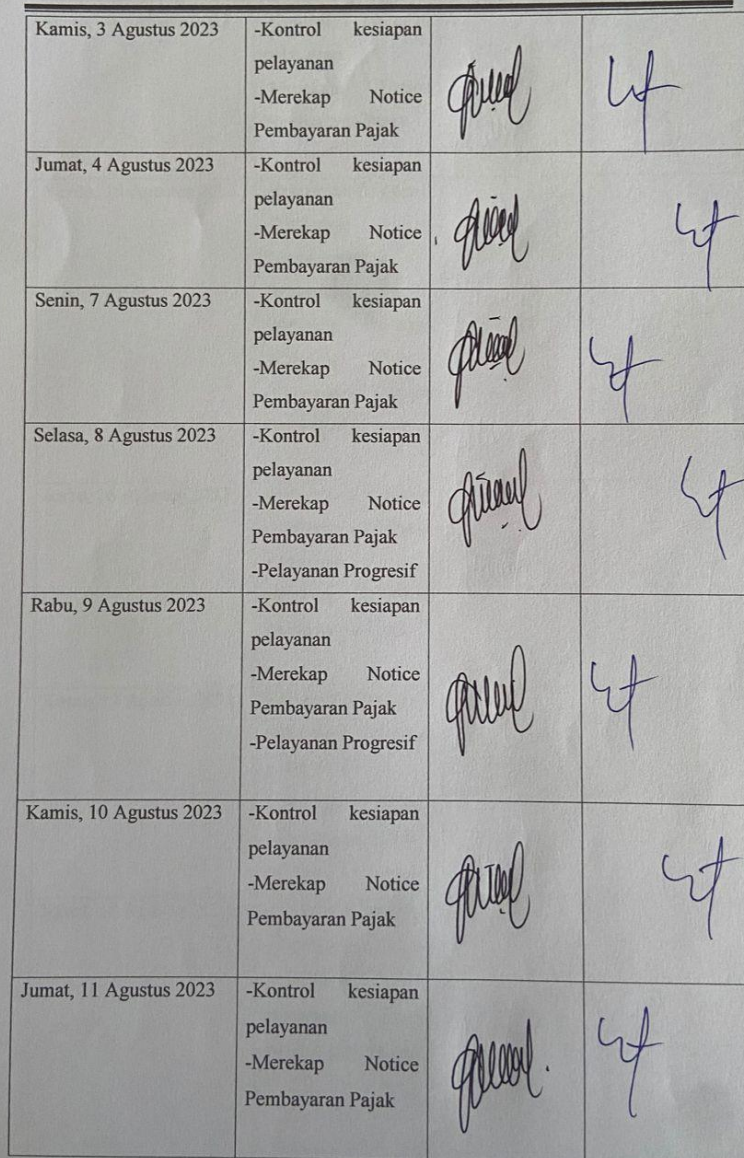 Kamis, 3 Agustus 2023
-Kontrol kesiapan
pelayanan
-Merekap Notice
Pembayaran Pajak
Jumat, 4 Agustus 2023
-Kontrol kesiapan
pelayanan
-Merekap Notice
Pembayaran Pajak
Senin, 7 Agustus 2023
-Kontrol kesiapan
pelayanan
-Merekap Notice
Pembayaran Pajak
Selasa, 8 Agustus 2023
-Kontrol kesiapan
pelayanan
-Merekap Notice
Pembayaran Pajak
-Pelayanan Progresif
Rabu, 9 Agustus 2023
-Kontrol kesiapan
pelayanan
-Merekap Notice
Pembayaran Pajak
-Pelayanan Progresif
Kamis, 10 Agustus 2023
-Kontrol kesiapan
pelayanan
-Merekap Notice
Pembayaran Pajak
Jumat, 11 Agustus 2023
-Kontrol kesiapan
pelayanan
-Merekap Notice
Pembayaran Pajak